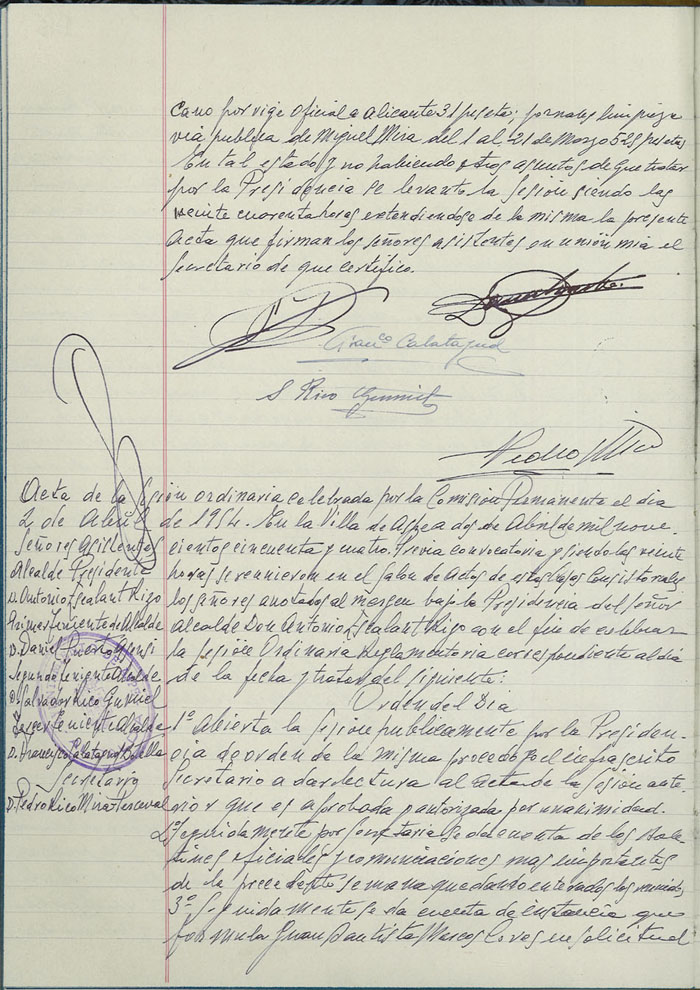 cano por vige oficial a Alicante 31 peseta; jornales limpieza
via publica de Miguel Mira del 1 al 21 de Marzo 525 pesetas
En tal estado y no habiendo otros asuntos de que tratar
por la Presidencia se levanto la sesion siendo las
veinte cuarenta horas extendiendose de la misma la presente
acta que firman los señores asistentes en union mia el
Secretario de que certifico.
Franco Calatayud
S Rico Gumiel
Pedro Rico
Acta de la sesion ordinaria celebrada por la Comision Permanente el dia
2 de Abril de 1954. En la Villa de Aspe a dos de Abril de mil nove-
cientos cincuenta y cuatro. Previa convocatoria y siendo las veinte
horas se reunieron en el salon de actos de estas Casas Consistoriales
los señores anotados al margen bajo la Presidencia del señor
Alcalde Don Antonio Escalant Rigo con el fin de celebrar
la sesion Ordinaria reglamentaria correspondiente al dia
de la fecha y tratar del siguiente:
Señores Asistentes
Alcalde Presidente
D. Antonio Escalant Rigo
Primer Teniente de Alcalde
D. Daniel Puerto
Segundo Teniente Alcalde
D. Salvador Rico Gumiel
Tercer Teniente Alcalde
D. Francisco Calatayud Botella
Secretario
D. Pedro Rico Mira-Perceval
Orden del Dia
1º Abierta la sesion publicamente por la Presiden-
cia de orden de la misma procedo yo el infrascrito
Secretario a dar lectura al acta de la sesion ante-
rior que es aprobada y autorizada por unanimidad.
2º Seguidamente por Secretaria se da cuenta de los Bole-
tines oficiales y comunicaciones mas importantes
de la precedente semana quedando enterados los reunidos
3º Seguidamente se da cuenta de instancia que
formula Juan Bautista Marcos en solicitud